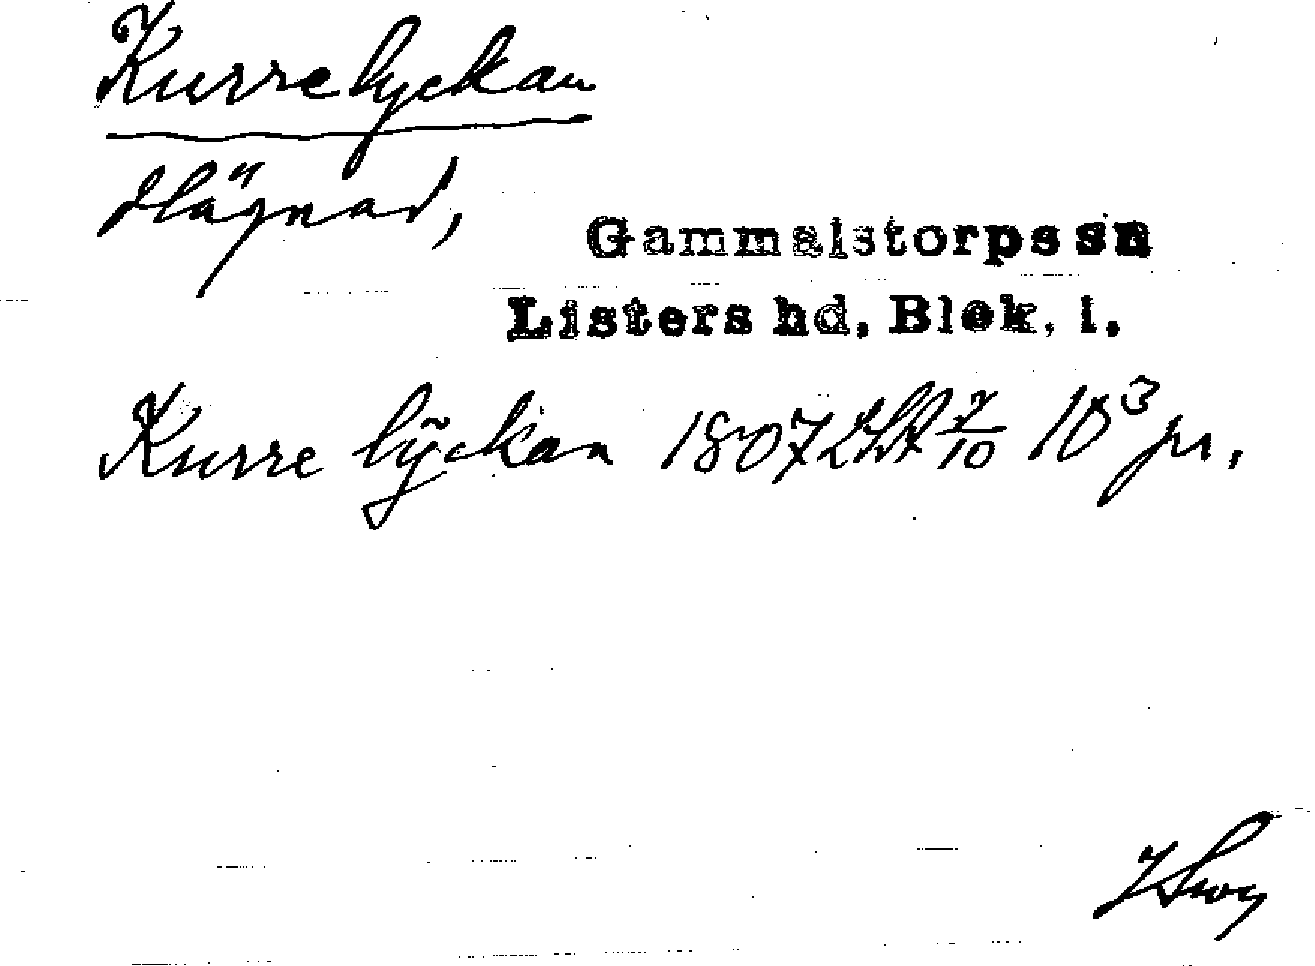 Kurrelyckan
Hägnad,
Gammalstorps sn
Listers hd, Blek. l.
Kurre lyckan 1807 7/10 pr,